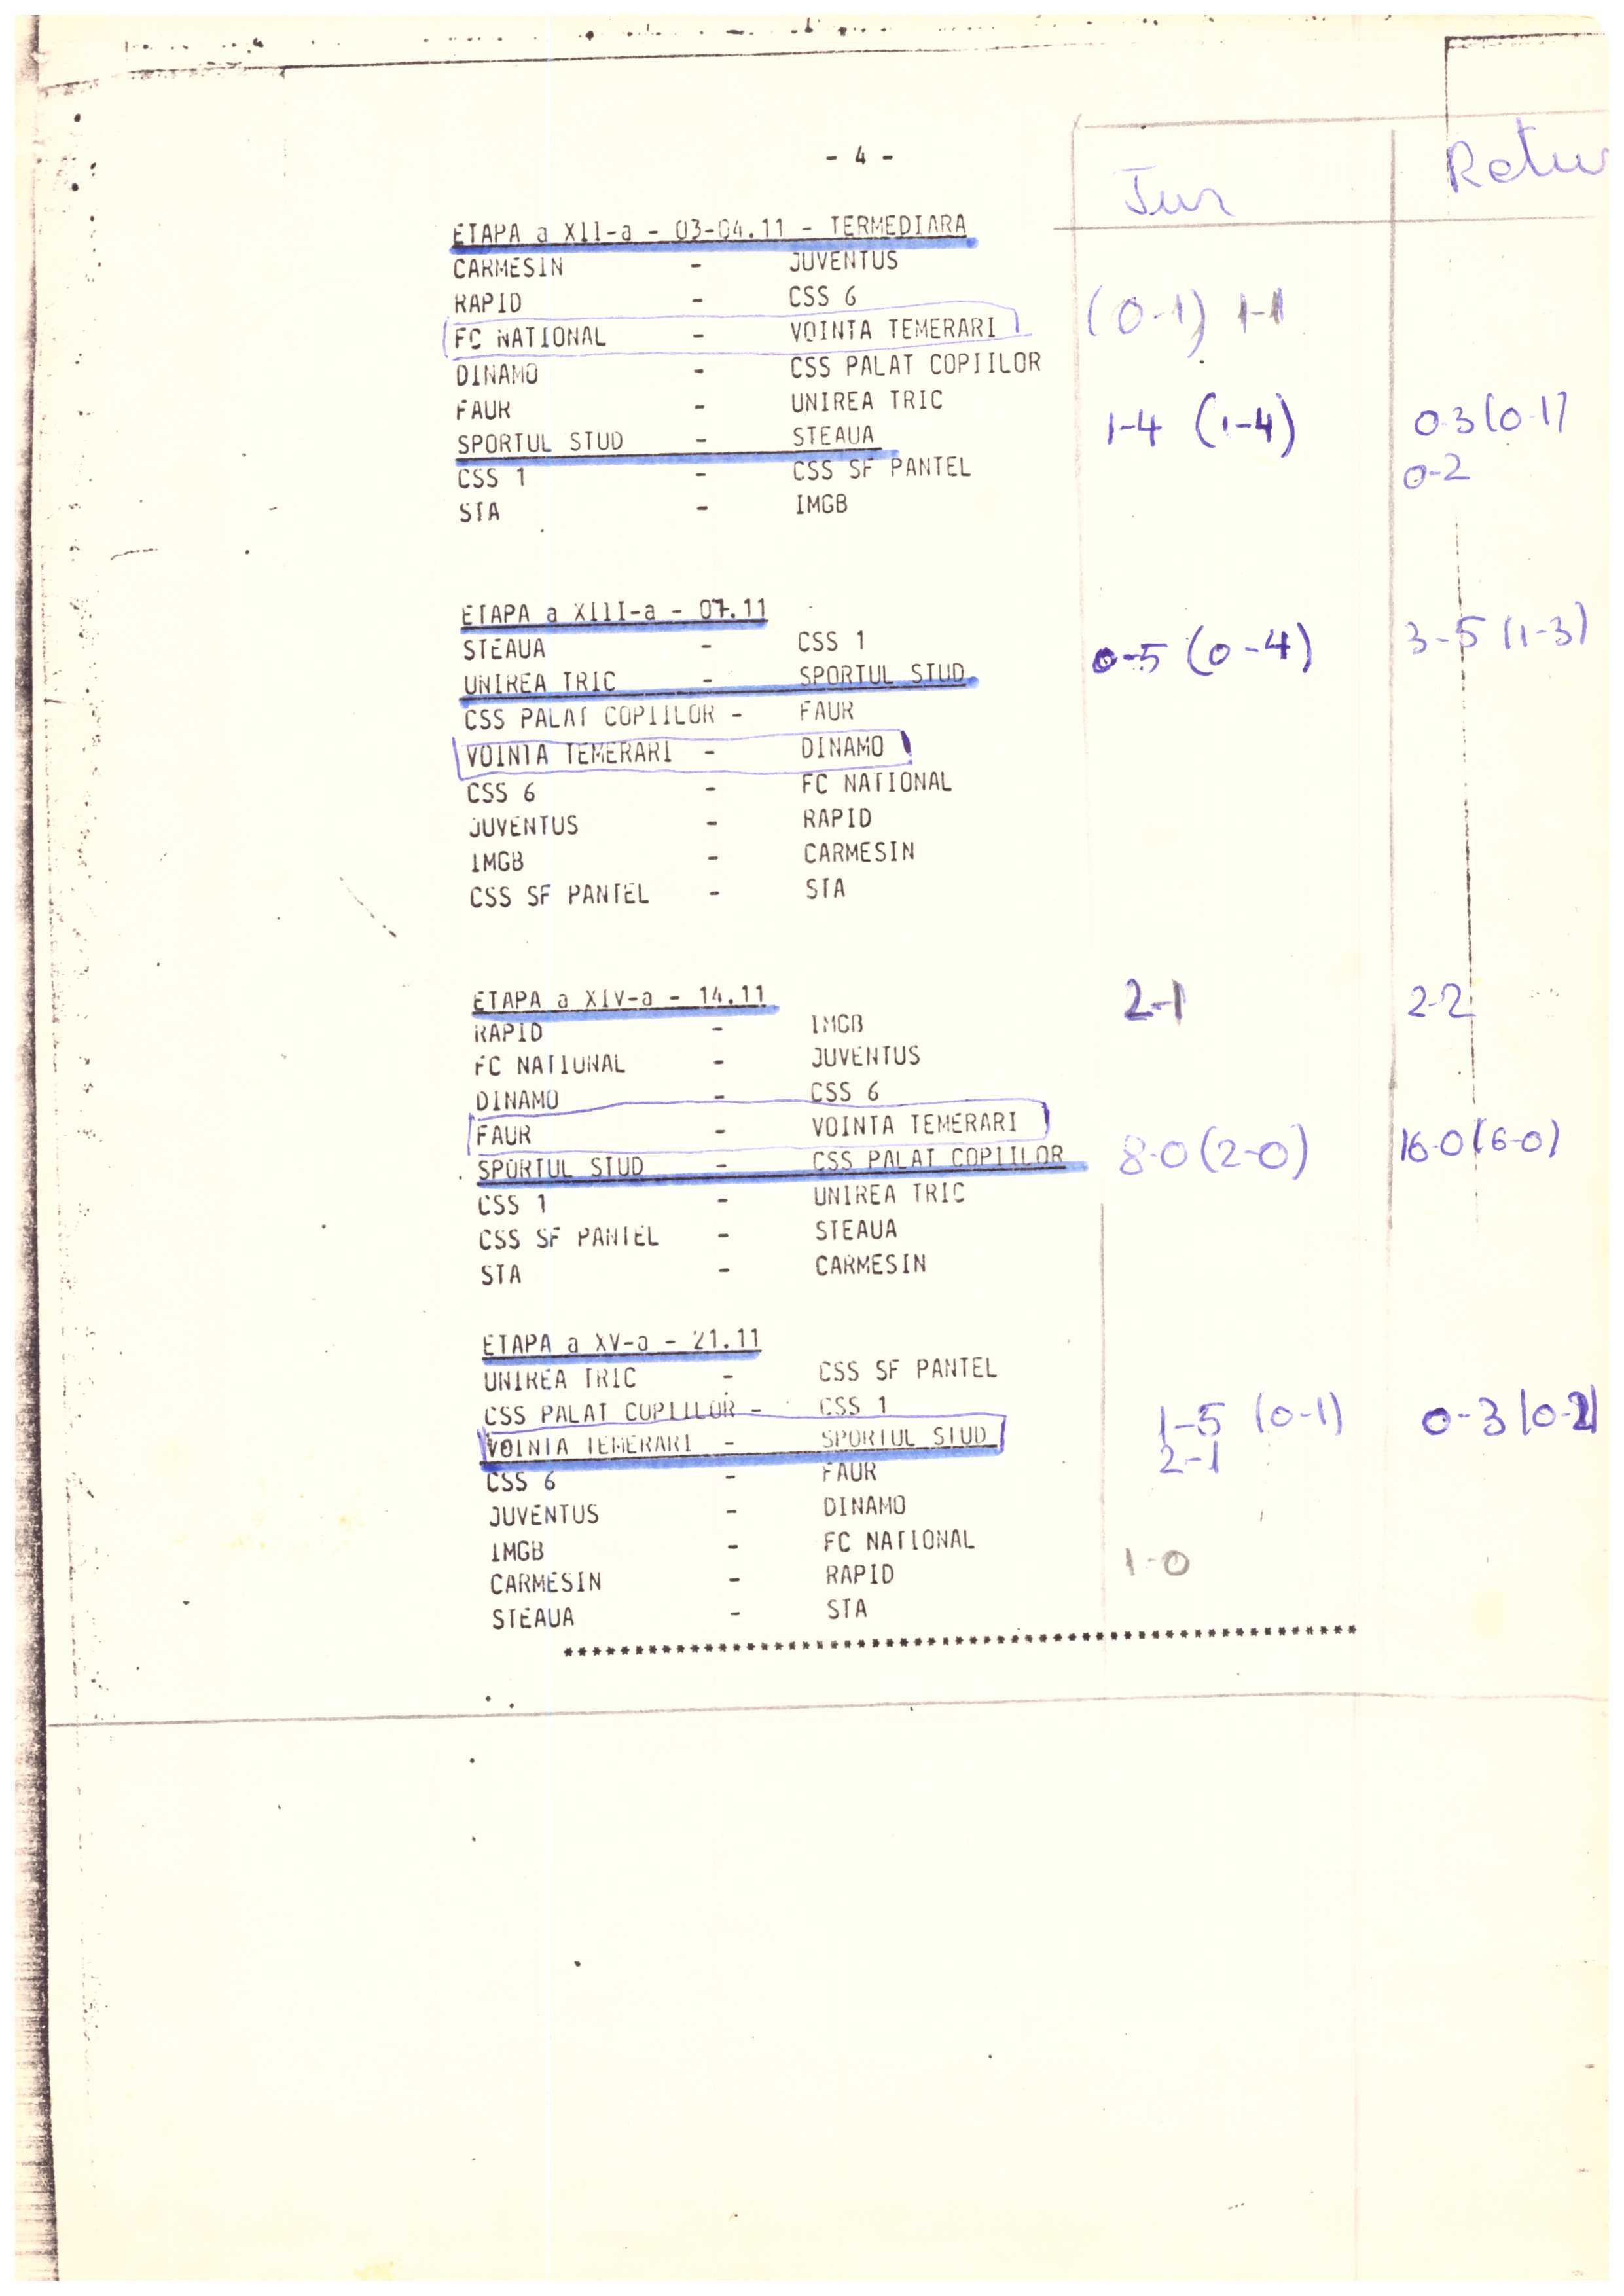 - 4 -
Tur Retur
ETAPA a XII-a - 03-04.11 - TERMEDIARA
CARMESIN - JUVENTUS
RAPID - CSS 6 (0-1) 1-1
FC NATIONAL - VOINTA TEMERARI
DINAMO - CSS PALAT COPIILOR
FAUR - UNIREA TRIC
SPORTUL STUD - STEAUA 1-4 (1-4) 0-3 (0-1)
CSS 1 - CSS SF PANTEL 0-2
STA - IMGB
ETAPA a XIII-a - 07.11
STEAUA - CSS 1
UNIREA TRIC - SPORTUL STUD 0-5 (0-4) 3-5 (1-3)
CSS PALAT COPIILOR - FAUR
VOINTA TEMERARI - DINAMO
CSS 6 - FC NATIONAL
JUVENTUS - RAPID
IMGB - CARMESIN
CSS SF PANTEL - STA
ETAPA a XIV-a - 14.11 2-1 2-2
RAPID - IMGB
FC NATIONAL - JUVENTUS
DINAMO - CSS 6
FAUR - VOINTA TEMERARI
SPORTUL STUD - CSS PALAT COPIILOR 8-0 (2-0) 16-0 (6-0)
CSS 1 - UNIREA TRIC
CSS SF PANTEL - STEAUA
STA - CARMESIN
ETAPA a XV-a - 21.11
UNIREA TRIC - CSS SF PANTEL
CSS PALAT COPIILOR - CSS 1
VOINTA TEMERARI - SPORTUL STUD 1-5 (0-1) 0-3 (0-2)
CSS 6 - FAUR 2-1
JUVENTUS - DINAMO
IMGB - FC NATIONAL
CARMESIN - RAPID 1-0
STEAUA - STA
*********************************************************